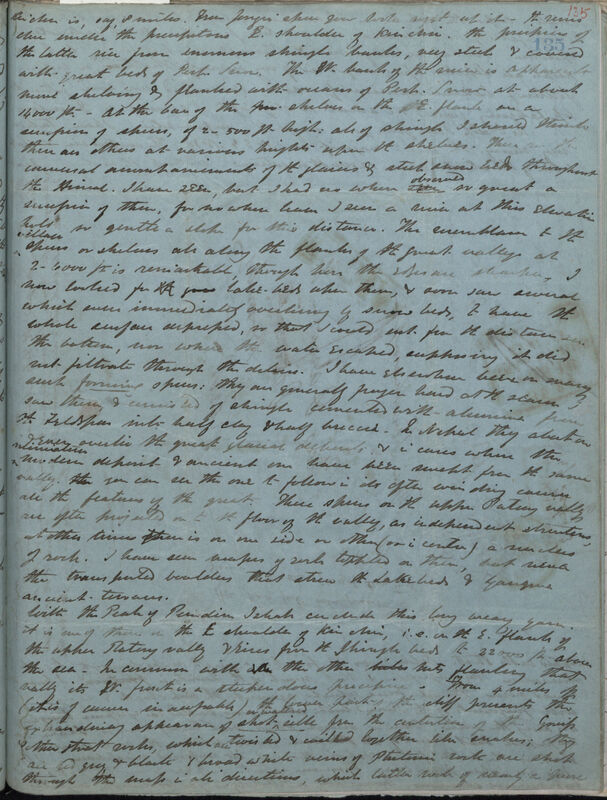 135
185
Kinchin is, say 8 miles. From Jongri spur you look right at it — the
the precipitous E. shoulder of Kinchin. the precipice of
the latter rise from enormous shingle banks, very steep & covered
with great beds of Perp. Snow. The W. bank of the river is apparently
more shelving & flanked with oceans of Perp. Snow at about
14000 ft. — At the base of the shelves on the E. flank are a
succession of spurs, of 2-500 ft high, all of shingle I should think
there are others at various heights upon the shelves. These are the
universal accompaniments of the glaciers & steep snow beds throughout
the Himal. I have seen, but I had no where observed so great a
succession of them, for no where have I seen a river at this elevation
hold so gentle a slope for this distance. The resemblance to the
spurs or shelves all along the flanks of the great valleys at
2-4000 ft is remarkable, though here the edges are sharper, I
now looked for the lake-beds when there, & soon saw several
which were immediately overhung by snow beds, & have the
whole surface
the bottom, nor where the water escaped, supposing it did
not filtrate through the debris. I have elsewhere been on many
such forming spurs: they are generally frozen hard at the season I
saw them & consisted of shingle cemented with alumina from
the Feldspar into half clay & half breccia. In Nepal they abut on
& even overlie the great glacial deposits, & in cases where the
intermediate
modern deposit & ancient one have been swept from the same
valley, you can see the one to follow in its often winding course
all the features of the great. These spurs on the upper Ratong valley
are often projected on to the floor of the valley, as independent structures,
at other times there is on one side or other (or in centre) a nucleus
of rock. I have seen masses of rock toppled on them, but never
the transported boulders that strew the Lake beds & Yangma
ancient terraces.
With the Peak of Pundim I shall conclude this long weary yarn.
it is one of those on the E shoulder of Kinchin, i.e. on the E. flank of
the upper Ratong valley & rises from the Shingle bed to 22000 ft above
the sea. In common with the other flanking that
valley its W. front is a stupendous precipice. From 4 miles off
(it is of course inaccessible) the lower part of the cliff presents the
extraordinary appearance of shot silk from the contortion of the Gneiss
& other strat. rocks, which are twisted & coiled together like snakes; they
are red grey & black & broad white veins of Plutonic rock are shot
through the mass in all directions, which latter rock of nearly a pure